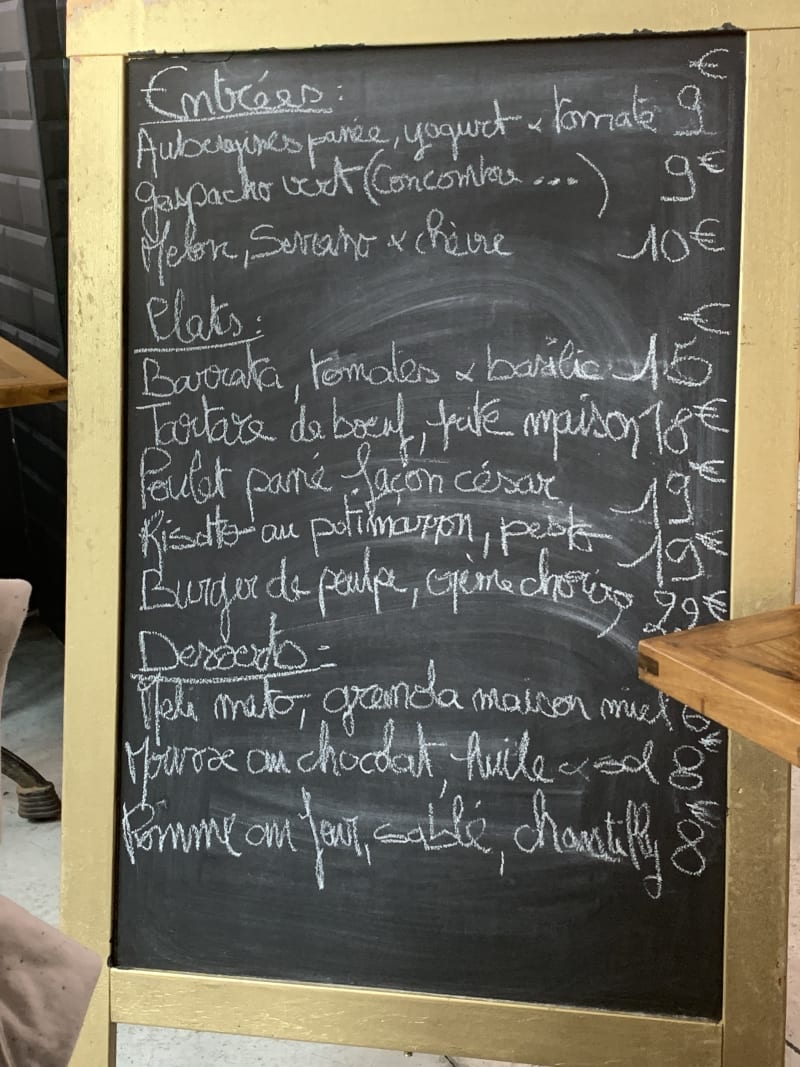 Entrées :
Aubergines panée, yogurt & tomate 9€
Gaspacho vert (Concombre ...) 9€
Melon, Serrano & chèvre 10€
Plats :
Burrata, tomates & basilic 15€
Tartare de boeuf, frite maison 18€
Poulet pané façon césar 19€
Risotto au potimarron, pesto 19€
Burger de poulpe, crème chorizo 22€
Desserts :
Meli mato, granola maison miel
Mousse au chocolat, huile & sel 8€
Pomme au four, sablé, chantilly 8€